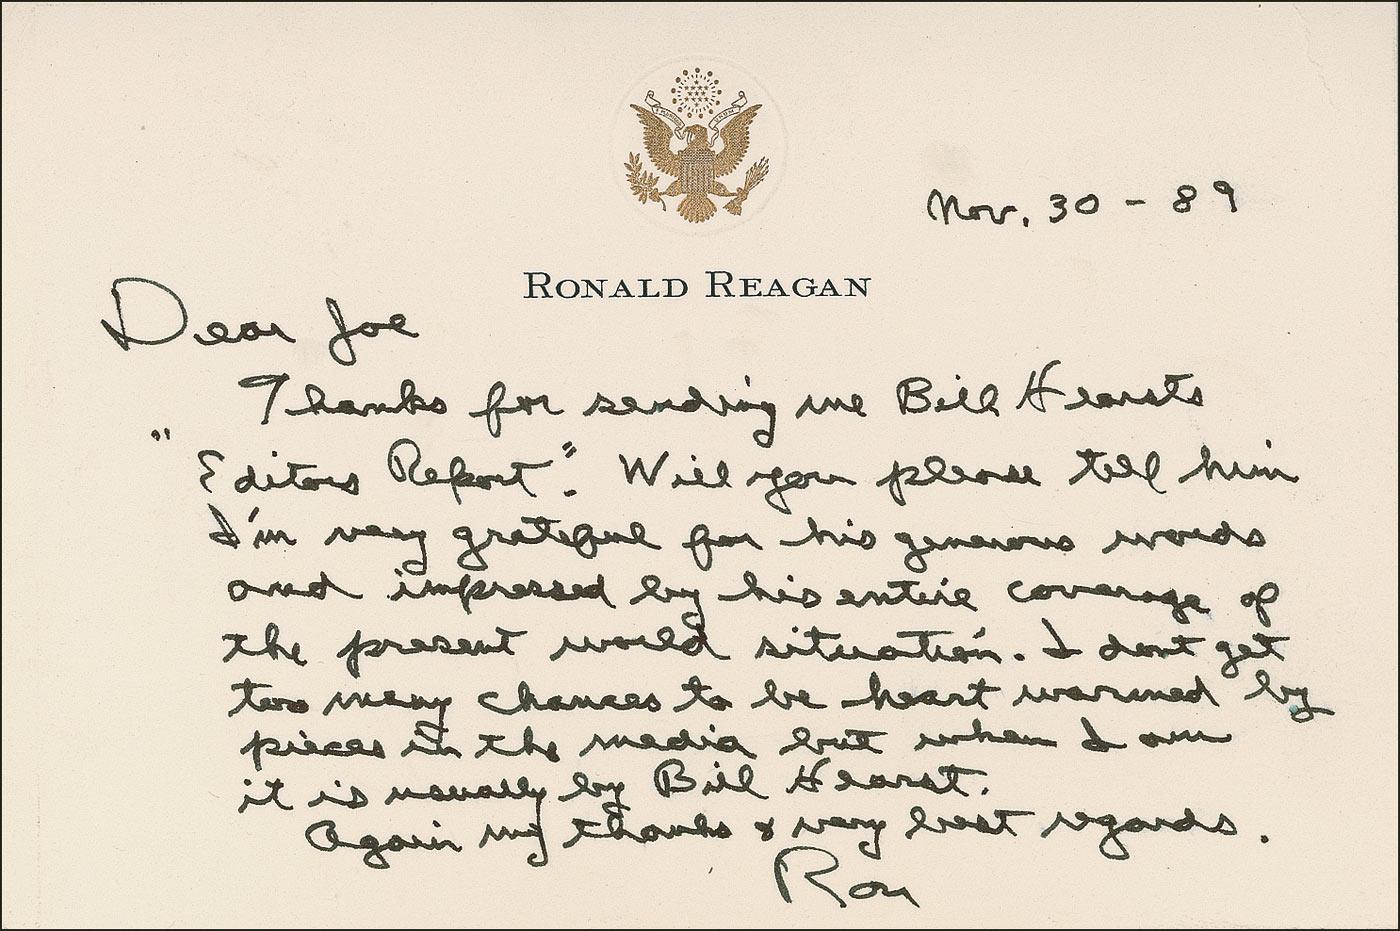 Nov. 30 - 89
RONALD REAGAN
Dear Joe
Thanks for sending me Bill Hearsts
"Editors Report". Will you please tell him
I'm very grateful for his generous words
and impressed by his entire coverage of
the present world situation. I dont get
too many chances to be heart warmed by
pieces in the media but when I am
it is usually by Bill Hearst.
Again my thanks & very best regards.
Ron